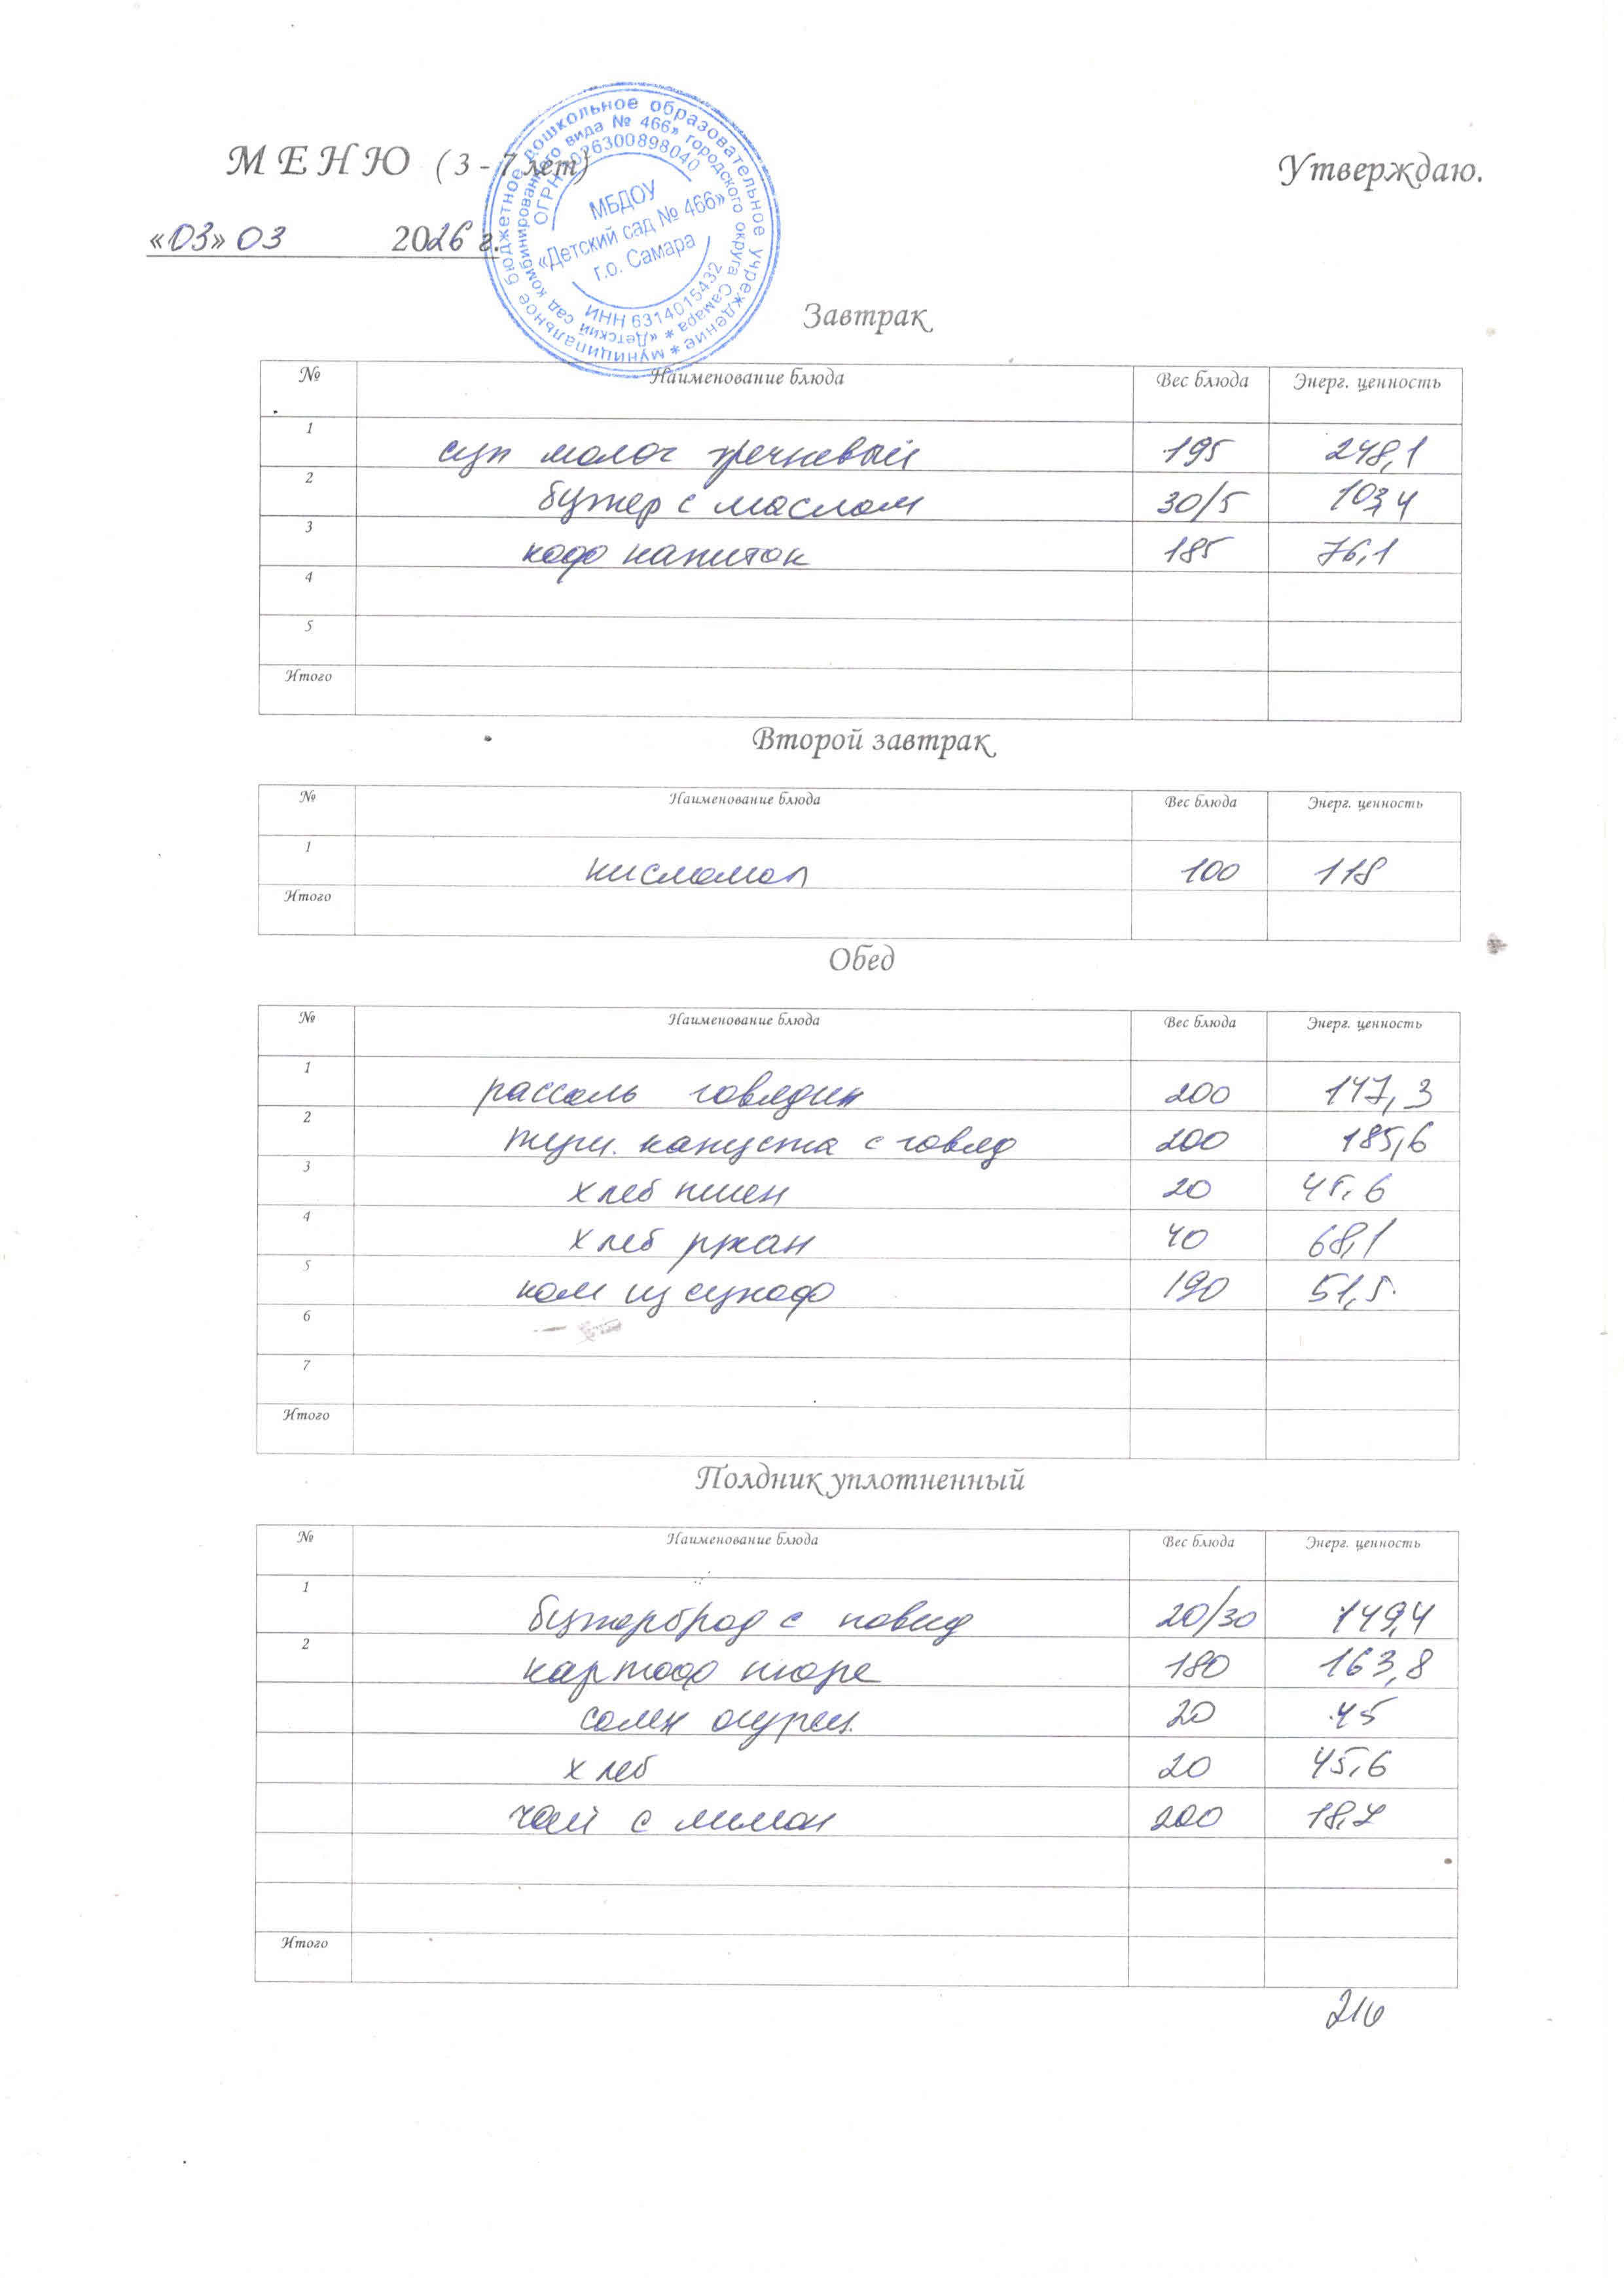 М Е Н Ю ( 3 - 7 лет)
Утверждаю.
«03» 03 2026 г.
муниципальное бюджетное дошкольное образовательное учреждение * «Детский сад комбинированного вида № 466» городского округа Самара *
ОГРН 1026300898040
МБДОУ
«Детский сад № 466»
г.о. Самара
ИНН 6314015432
Завтрак
№ Наименование блюда Вес блюда Энерг. ценность
1 суп молоч гречневый 195 248,1
2 бутер с маслом 30/5 103,4
3 кофе напиток 185 76,1
4
5
Итого
Второй завтрак
№ Наименование блюда Вес блюда Энерг. ценность
1 кисломол 100 118
Итого
Обед
№ Наименование блюда Вес блюда Энерг. ценность
1 рассоль говядин 200 147,3
2 туш. капуста с говяд 200 185,6
3 хлеб пшен 20 45,6
4 хлеб ржан 40 68,1
5 ком из сухоф 190 51,5
6
7
Итого
Полдник уплотненный
№ Наименование блюда Вес блюда Энерг. ценность
1 бутерброд с повид 20/30 149,4
2 картоф пюре 180 163,8
солен огурец 20 45
хлеб 20 45,6
чай с лимон 200 18,7
Итого